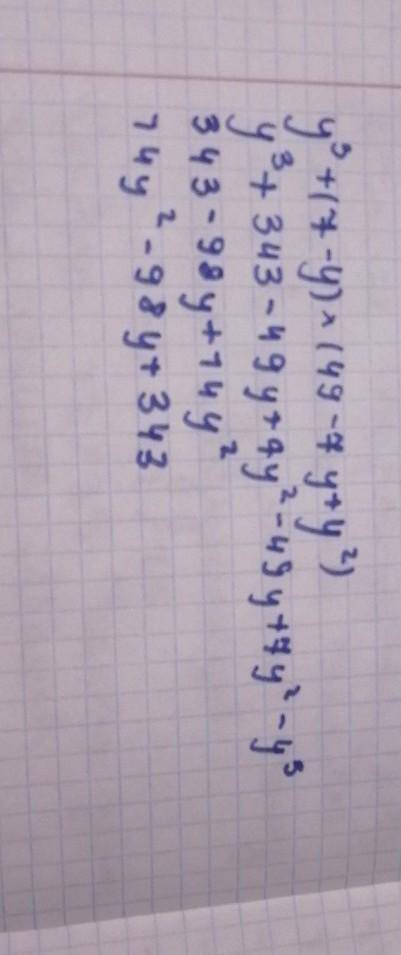 y³+(7-y)×(49-7y+y²)
y³+343-49y+7y²-49y+7y²-y³
343-98y+14y²
14y²-98y+343